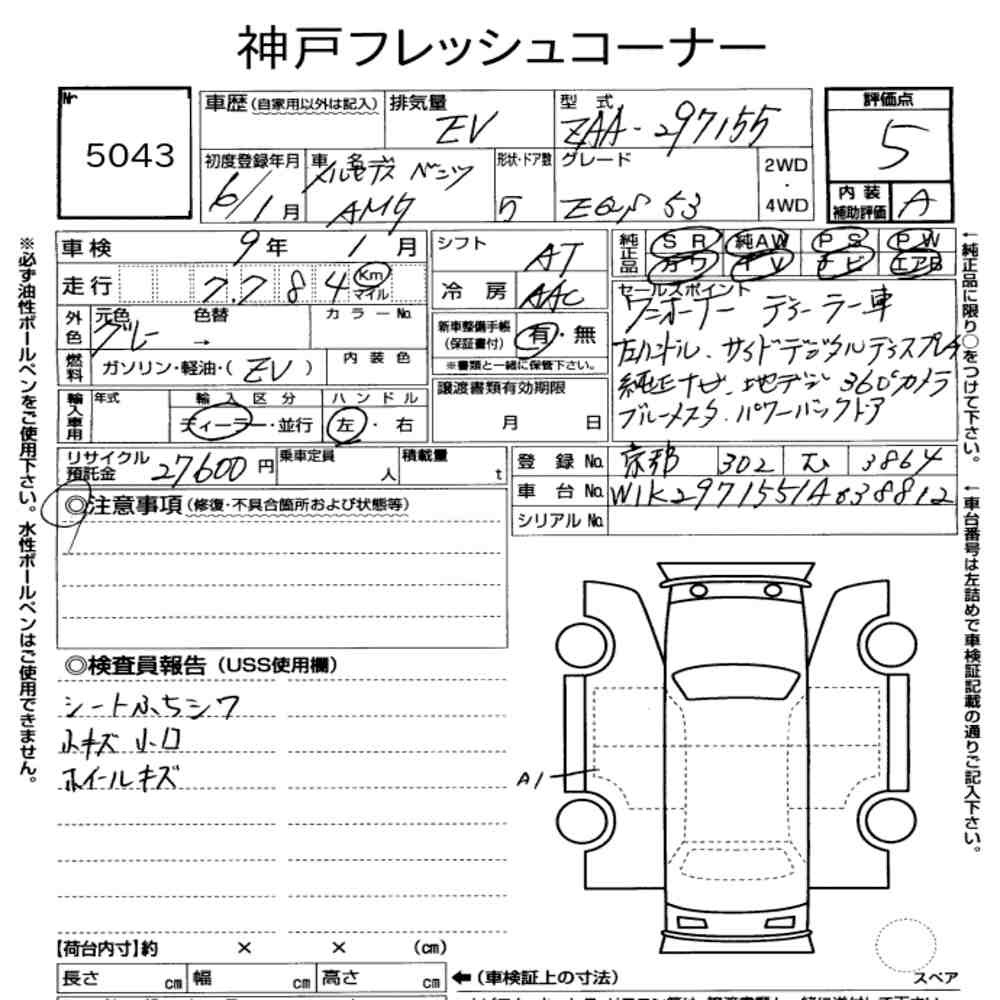 神戸フレッシュコーナー
№
5043
車歴(自家用以外は記入) 排気量 EV 型式 ZAA-297155
評価点
5
初度登録年月 6/1月 車名 メルセデス ベンツ AMG 形状・ドア数 5 グレード EQS 53 2WD・4WD
内装補助評価 A
車検 9年 1月
シフト AT
純正品 SR 純AW PS PW
カワ TV ナビ エアB
走行 7.7 8 4 Km マイル
冷房 AAC
セールスポイント
ワンオーナー ディーラー車
左ハンドル、サイドデジタルディスプレイ
純正ナビ、地デジ 360°カメラ
ブルーメスタ、パワーバックドア
外色 元色 グレー 色替 → カラーNo.
新車整備手帳(保証書付) 有・無
※書類と一緒に保管下さい。
燃料 ガソリン・軽油・( EV ) 内装色
譲渡書類有効期限
月 日
輸入車用 年式 輸入区分 ディーラー・並行 ハンドル 左・右
リサイクル預託金 27600円 乗車定員 人 積載量 t
登録No. 京都 302 3864
車台No. W1K2971551A038812
シリアルNo.
◎注意事項(修復・不具合箇所および状態等)
◎検査員報告(USS使用欄)
シートふちシワ
小キズ 小凹
ホイールキズ
A1
【荷台内寸】約 × × (cm)
長さ cm 幅 cm 高さ cm ←(車検証上の寸法)
スペア
※必ず油性ボールペンをご使用下さい。水性ボールペンはご使用できません。
←純正品に限り○をつけて下さい。
←車台番号は左詰めで車検証記載の通りご記入下さい。